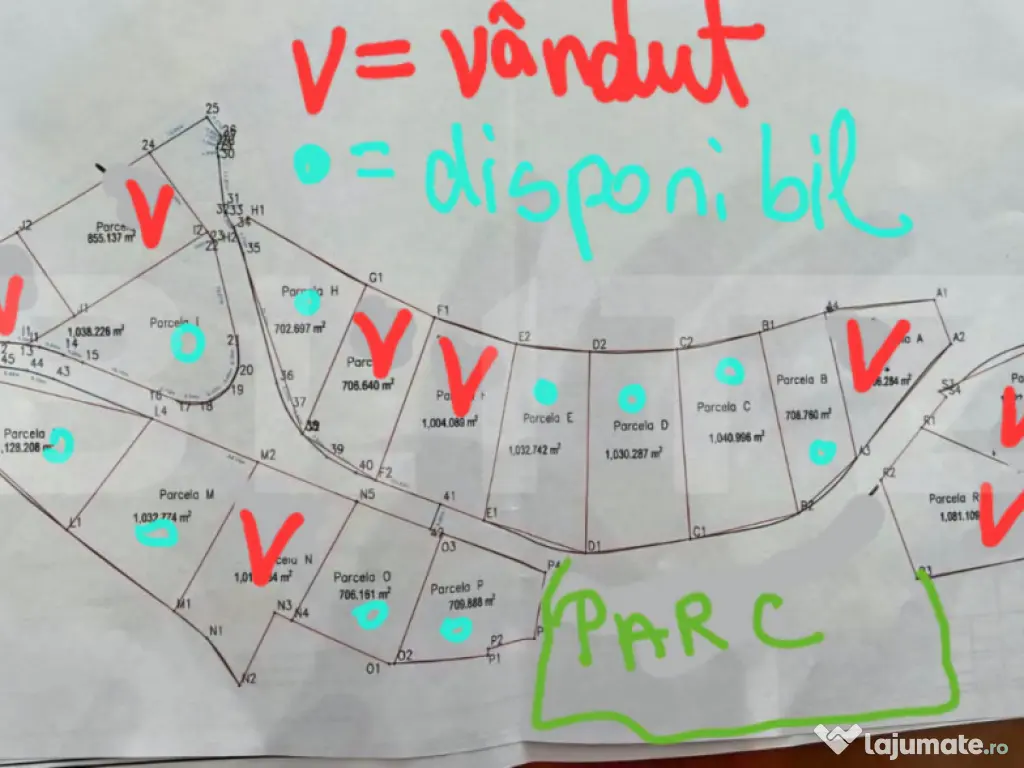 V = vândut
= disponibil
25
24
30
31
32 33 H1
34
J2
Parce
855.137 m²
I2 23 H2
22
35
G1
Parcela H
702.697 m²
J1
1,038.226 m²
Parcela I
F1
A1
A4
E2
D2
C2
B1
A2
I1
13
14
15
45
44
43
21
20
19
18
17
16
36
37
Parc
706.640 m²
1,004.089 m²
Parcela E
1,032.742 m²
Parcela D
1,030.287 m²
Parcela C
1,040.996 m²
Parcela B
708.760 m²
A
S4
R1
L4
39
40
F2
A3
R2
Parcela
1,128.208 m²
M2
N5
41
E1
D1
C1
B2
Parcela M
1,032.774 m²
L1
Parcela R
1,081.109
O3
P4
N
Parcela O
706.161 m²
Parcela P
709.888 m²
M1
N3
N4
N1
N2
O1
O2
P2
P1
P
PARC
lajumate.ro